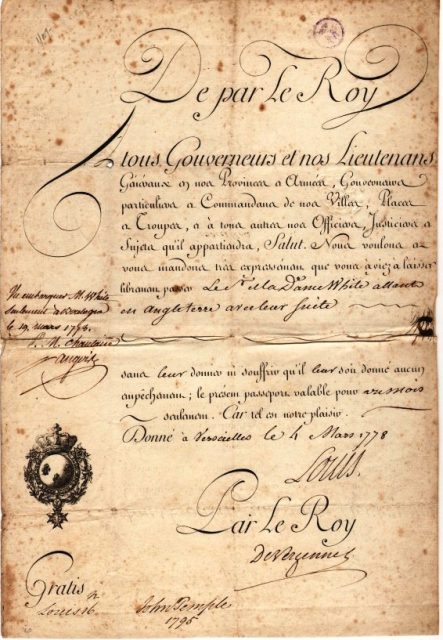 De par Le Roy
A tous Gouverneurs et nos Lieutenans
Généraux en nos Provinces & Armées, Gouverneurs
particuliers & Commandans de nos Villes, Places
& Troupes, & à tous autres nos Officiers, Justiciers
& Sujets qu'il appartiendra, Salut. Nous voulons &
vous mandons très expressément que vous ayiez à laisser
librement passer Le S. et la Dame White allant
en Angleterre avec leur suite
Vu embarquer M. White
seulement à Boulogne
le 19 mars 1778.
sans leur donner ni souffrir qu'il leur soit donné aucun
empêchement; le présent passeport valable pour un mois
seulement. Car tel est notre plaisir.
Donné à Versailles le 4 Mars 1778
Louis.
Par Le Roy
De Vergennes
Gratis
Louis 16
John Temple
1795